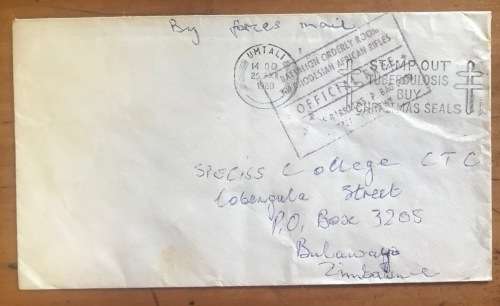 By forces mail
UMTALI
1980
BATTALION ORDERLY ROOM
RHODESIAN AFRICAN RIFLES
OFFICIAL
STAMP OUT
TUBERCULOSIS
BUY
CHRISTMAS SEALS
SPECISS College CTC
Lobengula Street
P.O. Box 3205
Bulawayo
Zimbabwe